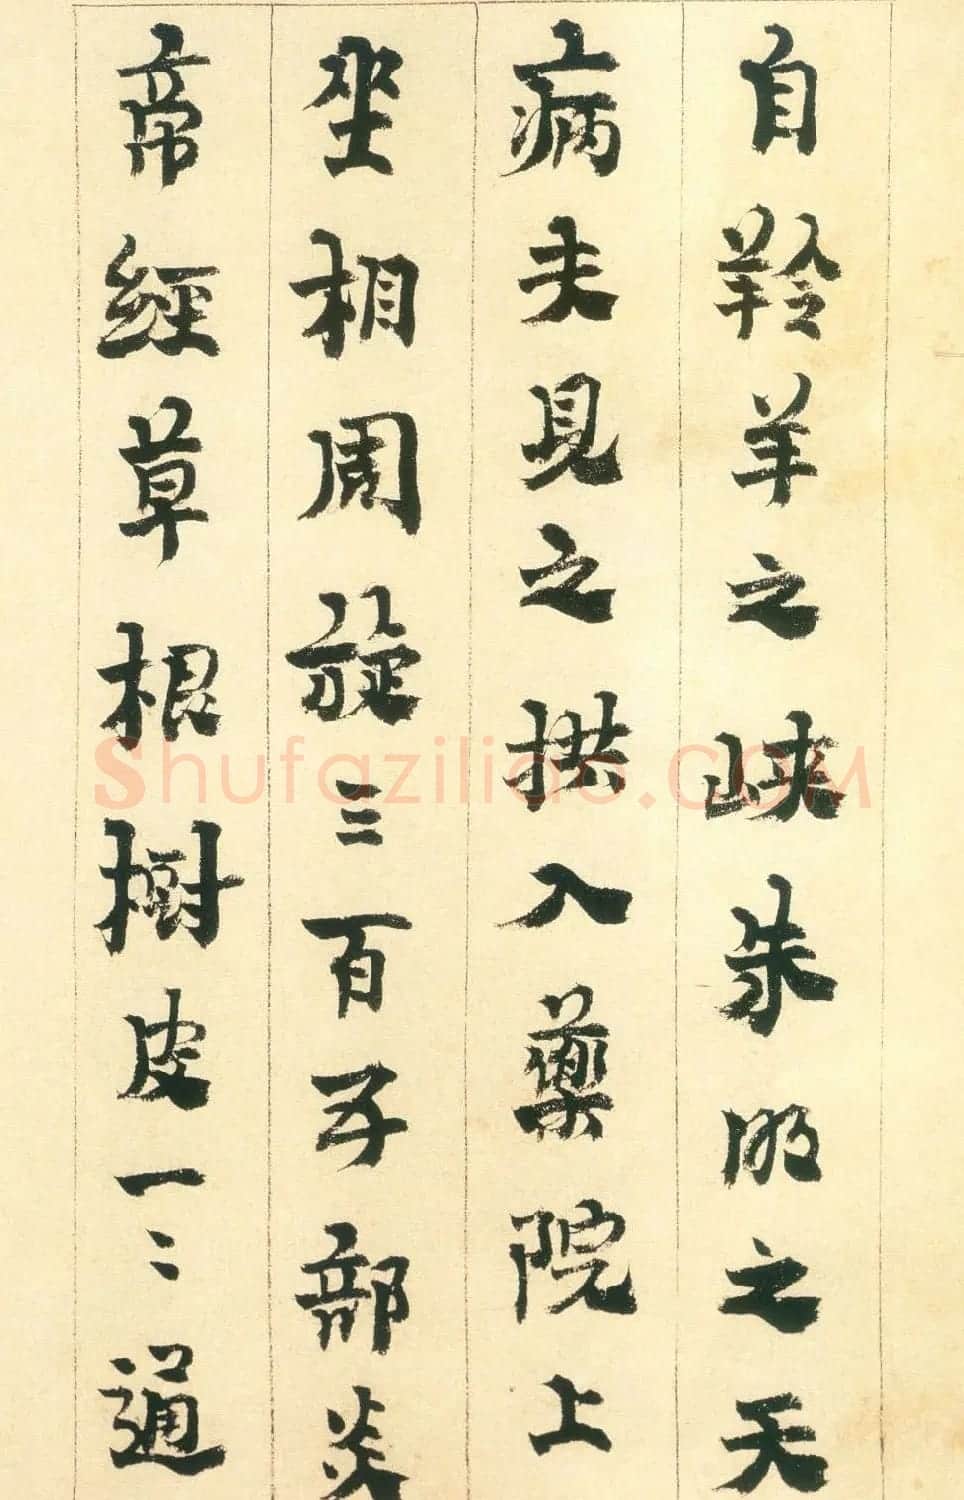 自羚羊之峡朱明之天
病夫見之拱入藥院上
坐相周旋三百五部炎
帝經草根樹皮一二通
Shufaziliao.COM